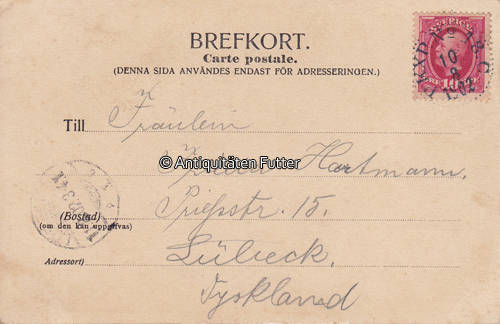 BREFKORT.
Carte postale.
(DENNA SIDA ANVÄNDES ENDAST FÖR ADRESSERINGEN.)
SVERIGE
10
8
1902
Till Fräulein
© Antiquitäten Futter
Hartmann.
Priessstr. 15.
(Bostad)
(om den kan uppgifvas)
Lübeck,
Adressort)
Tyskland